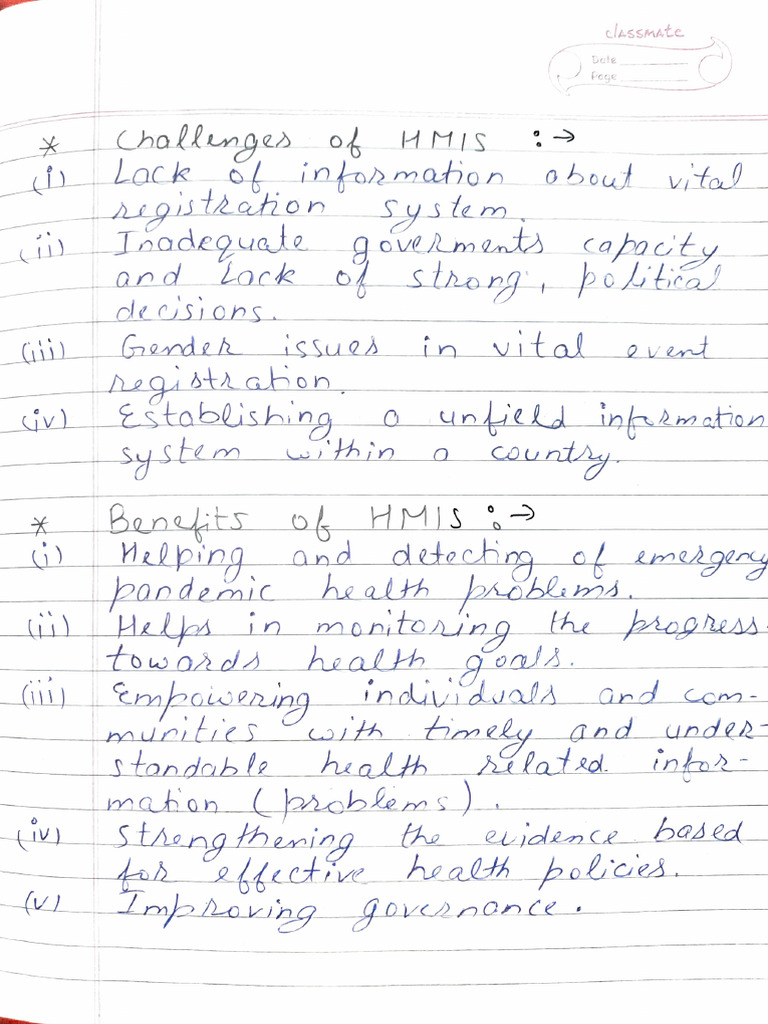 classmate
Date
Page
* Challenges of HMIS :→
(i) Lack of information about vital
registration system.
(ii) Inadequate goverments capacity
and lack of strong, political
decisions.
(iii) Gender issues in vital event
registration.
(iv) Establishing a unfield information
system within a country.
* Benefits of HMIS :→
(i) Helping and detecting of emergency
pandemic health problems.
(ii) Helps in monitoring the progress
towards health goals.
(iii) Empowering individuals and com-
munities with timely and under-
standable health related infor-
mation (problems).
(iv) Strengthening the evidence based
for effective health policies.
(v) Improving governance.